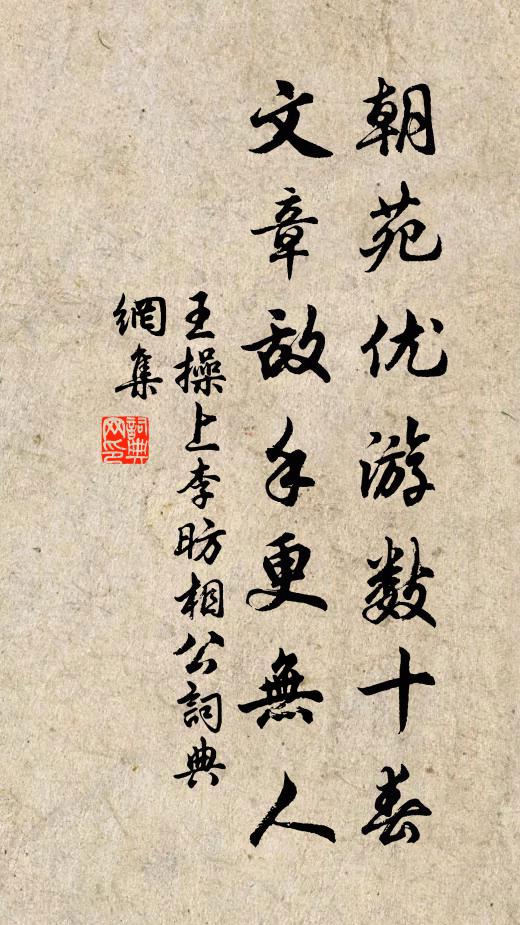 朝苑优游数十春
文章敌手更無人
王操上李昉相公詞典
網集
詞典
网印